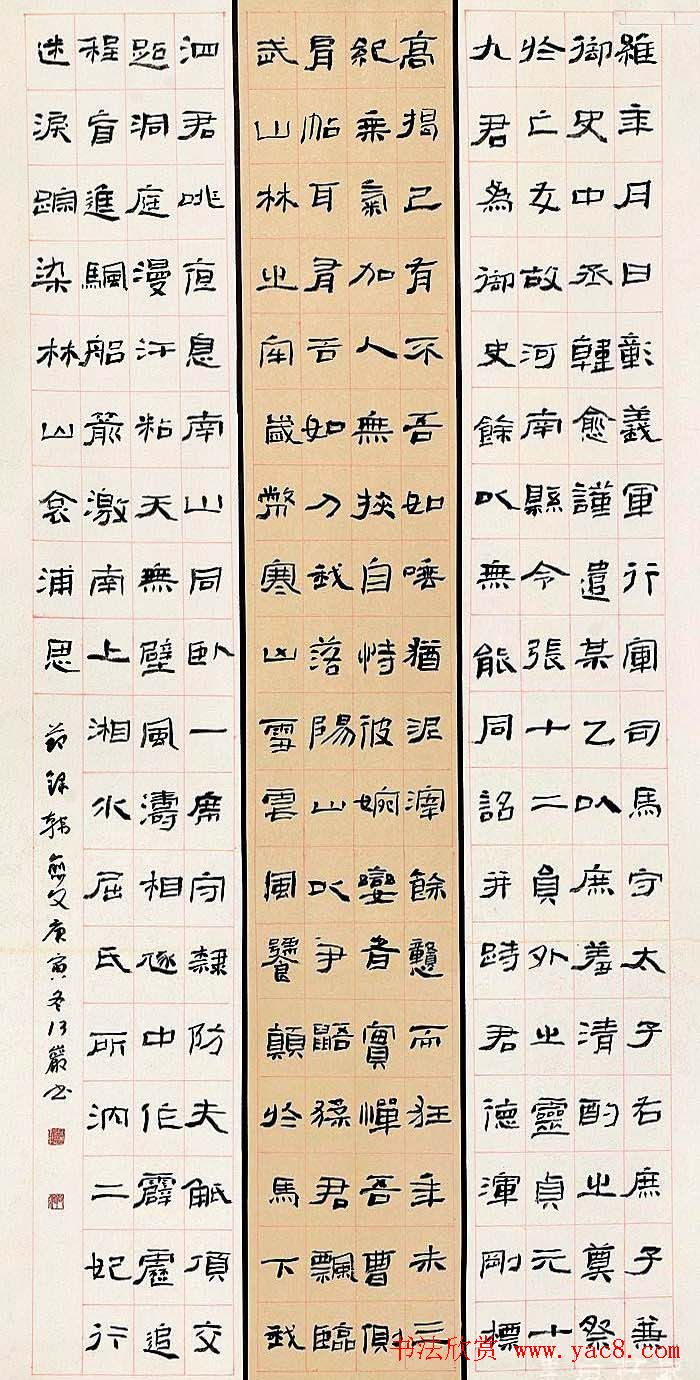 維年月日彰義軍行軍司馬守太子右庶子兼
御史中丞韓愈謹遣某乙以庶羞清酌之奠祭
於亡友故河南縣令張十二員外之靈貞元十
九君為御史餘以無能同詔并跱君德渾剛標
高揭己有不吾如唾猶泥滓餘戇而狂年未三
紀乘氣加人無挾自恃彼婉孌者實憚吾曹側
肩帖耳有舌如刀我落陽山以尹鼯猱君飄臨
武山林之牢歲弊寒凶雪虐風饕顛於馬下我
泗君咷夜息南山同臥一席守隸防夫觝頂交
跖洞庭漫汗粘天無壁風濤相豗中作霹靂追
程盲進颿船箭激南上湘水屈氏所沉二妃行
迷淚蹤染林山哀浦思
節錄韓愈文庚寅冬行嚴書
书法欣赏 www.yac8.com